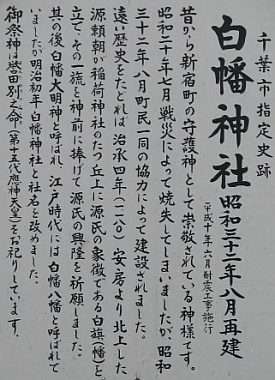 千葉市指定史跡
白幡神社 昭和三十二年八月再建
(平成十年六月耐震工事施行)
昔から新宿町の守護神として崇敬されている神様です。
昭和二十年七月戦災によって焼失してしまいましたが昭和
三十二年八月町民一同の協力によって建設されました。
遠い歴史をたどれば治承四年(一一八〇)安房より北上した
源頼朝が稲荷神社のたつ丘上に源氏の象徴である白旗幡を
立てその一旒を神前に捧げて源氏の興隆を祈願しました。
其の後白幡大明神と呼ばれ、江戸時代には白幡八幡と呼ばれて
いましたが明治初年白幡神社と社名を改めました。
御祭神は誉田別之命(第十五代應神天皇)をお祀りしています。